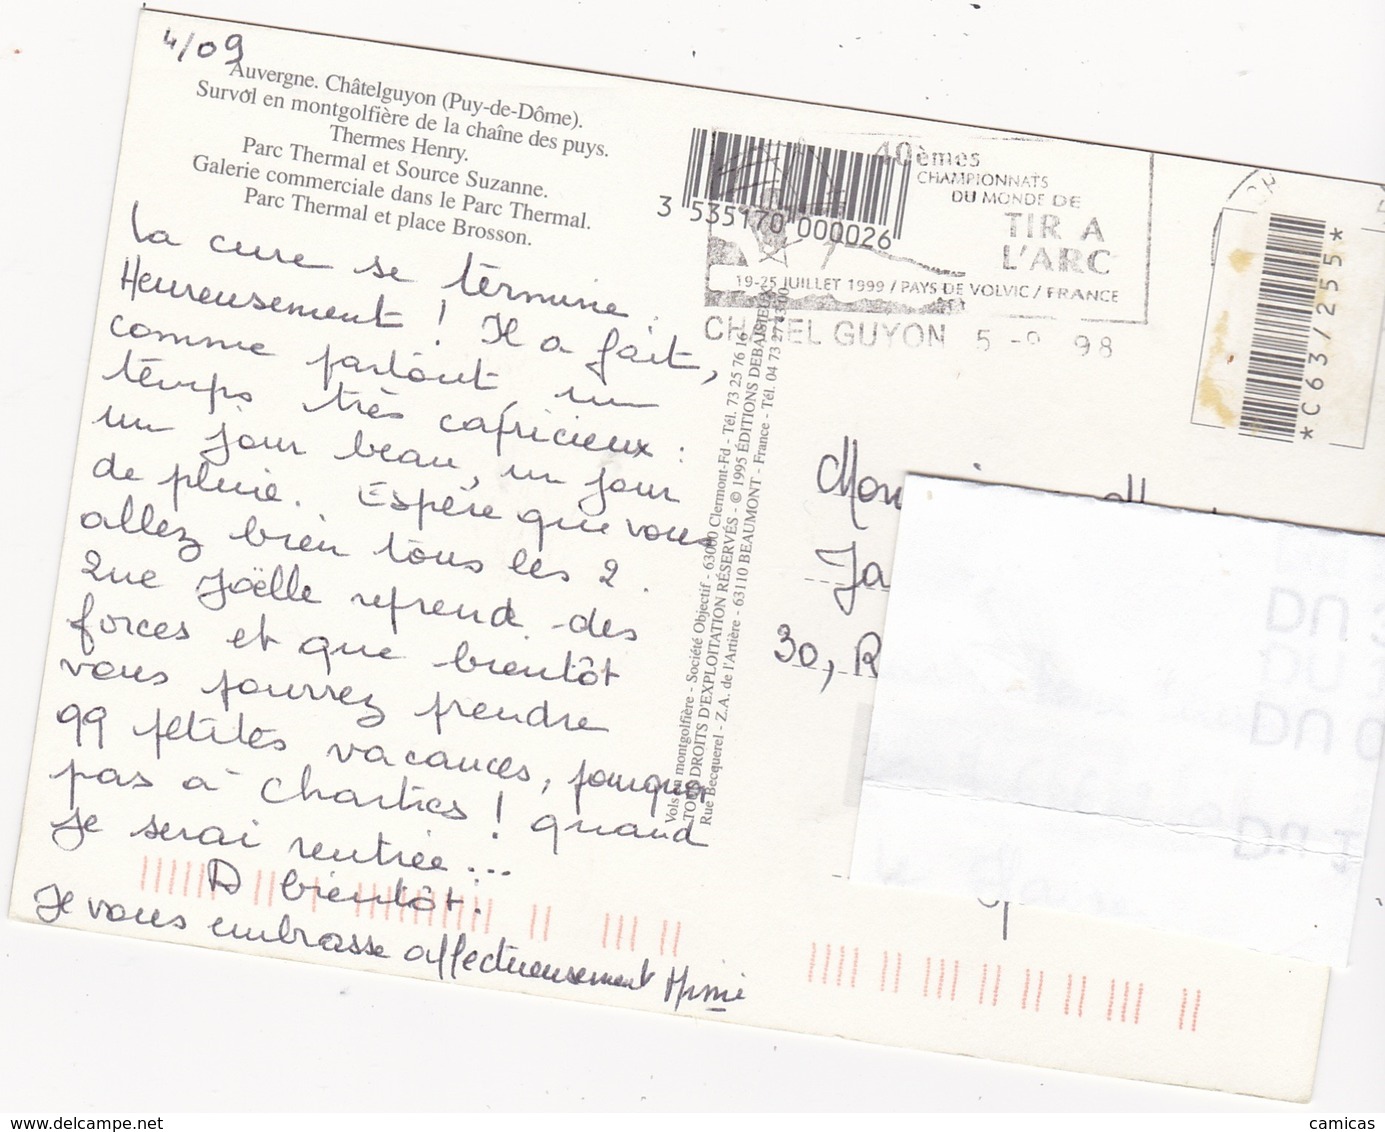 4/09
Auvergne. Châtelguyon (Puy-de-Dôme).
Survol en montgolfière de la chaîne des puys.
Thermes Henry.
Parc Thermal et Source Suzanne.
Galerie commerciale dans le Parc Thermal.
Parc Thermal et place Brosson.
La cure se termine.
Heureusement ! Il a fait,
comme partout, un
temps très capricieux :
un jour beau, un jour
de pluie. Espère que vous
allez bien tous les 2.
Que Joëlle reprend des
forces et que bientôt
vous pourrez prendre
99 petites vacances, pourquoi
pas à Chartres ! quand
je serai rentrée...
A bientôt.
Je vous embrasse affectueusement Mimi
3 535170 000026
40èmes
CHAMPIONNATS
DU MONDE DE
TIR A
L'ARC
19-25 JUILLET 1999 / PAYS DE VOLVIC / FRANCE
CHATEL GUYON 5 -9 98
*C63/255*
Vols en montgolfière - Société Objectif - 63000 Clermont-Fd - Tél. 73 25 76 16
TOUS DROITS D'EXPLOITATION RÉSERVÉS - © 1995 ÉDITIONS DEBAISIEUX
Rue Becquerel - Z.A. de l'Artière - 63110 BEAUMONT - France - Tél. 04 73 27 43 00
30, R
camicas